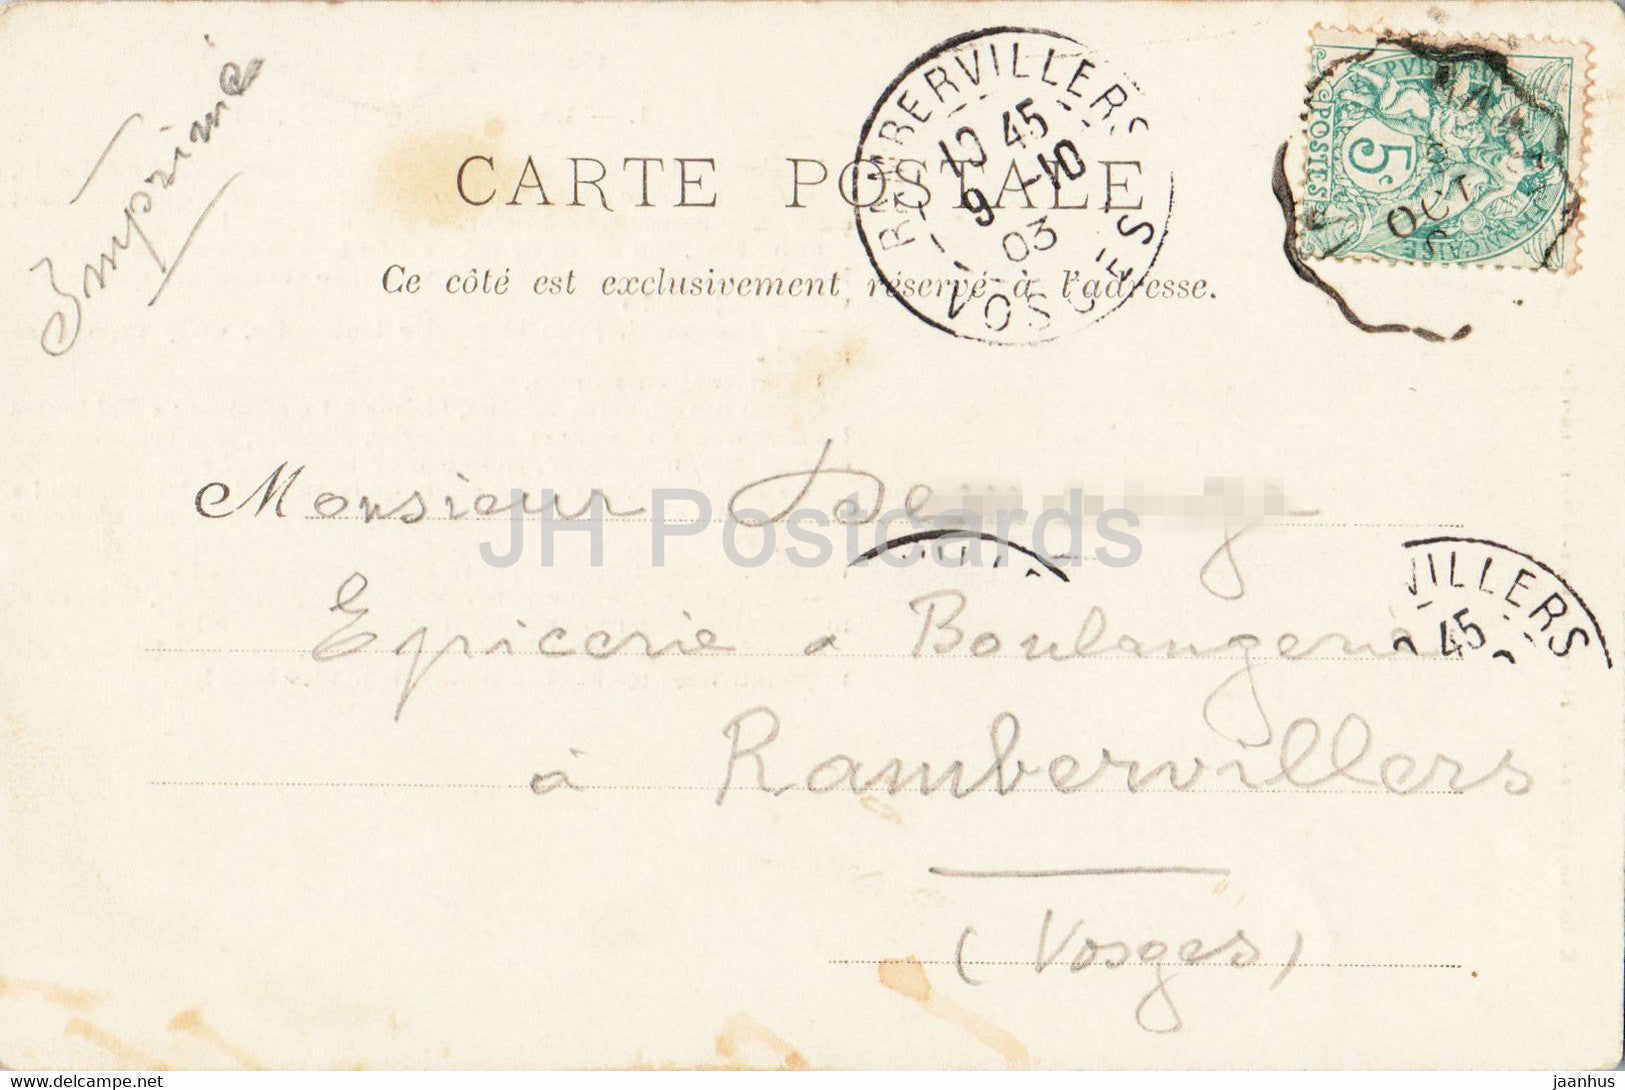 Imprimé
CARTE POSTALE
Ce côté est exclusivement réservé à l'adresse.
RAMBERVILLERS
10 45
9 -10
03
VOSGES
RÉPUBLIQUE FRANÇAISE
POSTES
5c
OCT
Monsieur
JH Postcards
Epicerie & Boulangerie
VILLERS
45
à Rambervillers
(Vosges)
www.delcampe.net
jaanhus